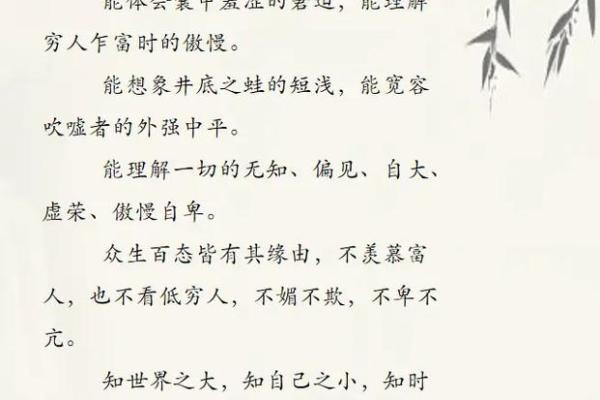 能体会囊中羞涩的窘迫，能理解
穷人乍富时的傲慢。
能想象井底之蛙的短浅，能宽容
吹嘘者的外强中平。
能理解一切的无知、偏见、自大、
虚荣、傲慢自卑。
众生百态皆有其缘由，不羡慕富
人，也不看低穷人，不媚不欺，不卑不
亢。
知世界之大，知自己之小，知时